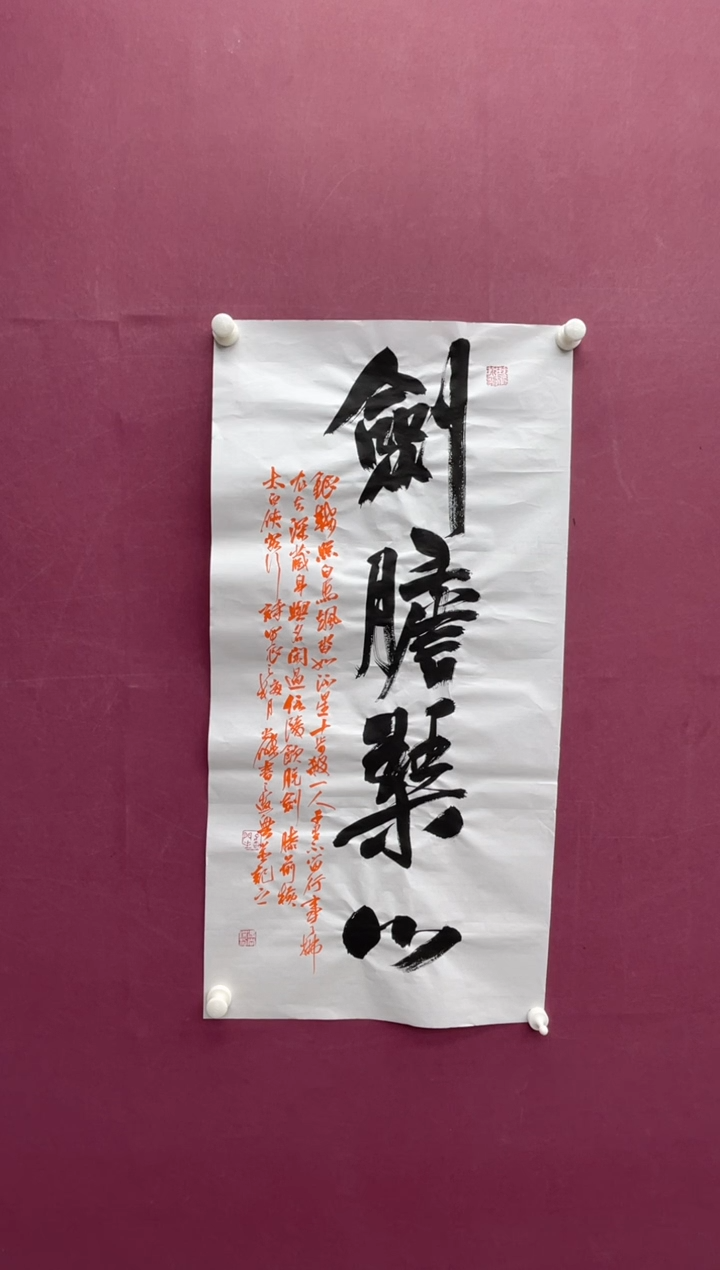 劍膽琴心
銀鞍照白馬颯沓如流星十步殺一人千里不留行事了拂
衣去深藏身與名閑過信陵飲脫劍膝前橫
太白俠客行詩